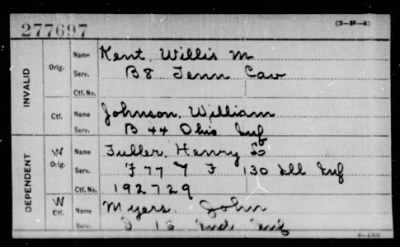 277697
(3-P-4)
INVALID
Orig. Name Kent, Willis M
Serv. B 8 Tenn Cav
Ctf. No.
Ctf. Name Johnson, William
Serv. B 44 Ohio Inf
DEPENDENT
W Orig. Name Fuller, Henry
Serv. F 77 & F 130 Ill Inf
Ctf. No. 192729
W Ctf. Name Myers, John
Serv. Ind Inf